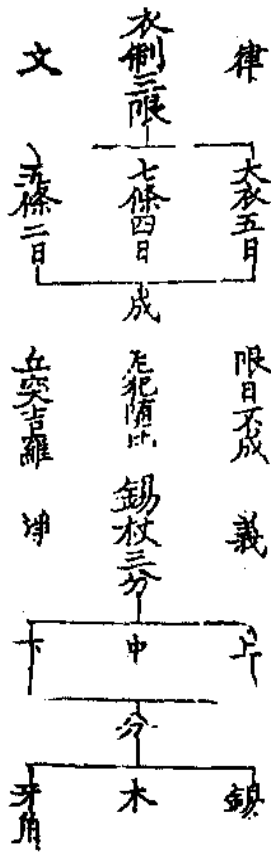 律
文
衣制三限
大衣五日
七條四日
五條二日
成
限日不成
尼犯墮比
丘突吉羅
義
淨
錫杖三分
上
中
下
分
木
牙角